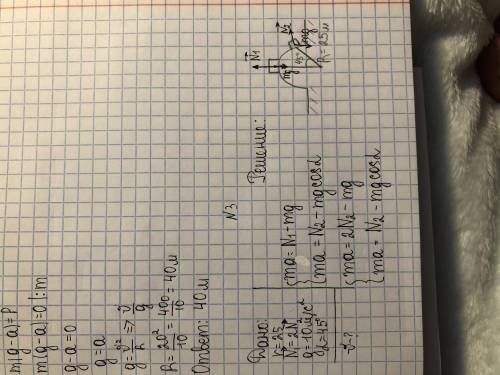 m(g-a)=P
m(g-a)=0 |:m
g-a=0
g=a
g=v²/R => v/g
R=20²/10=400/10=40м
Ответ: 40м
N3
Дано:
N₁=2N₂
g=10м/с²
α=45°
v-?
Решение:
{ma=N₁-mg
{ma=N₂-mgcosα
{ma=2N₂-mg
{ma=N₂-mgcosα
N₁
mg
45°
N₂
mg
R=25м